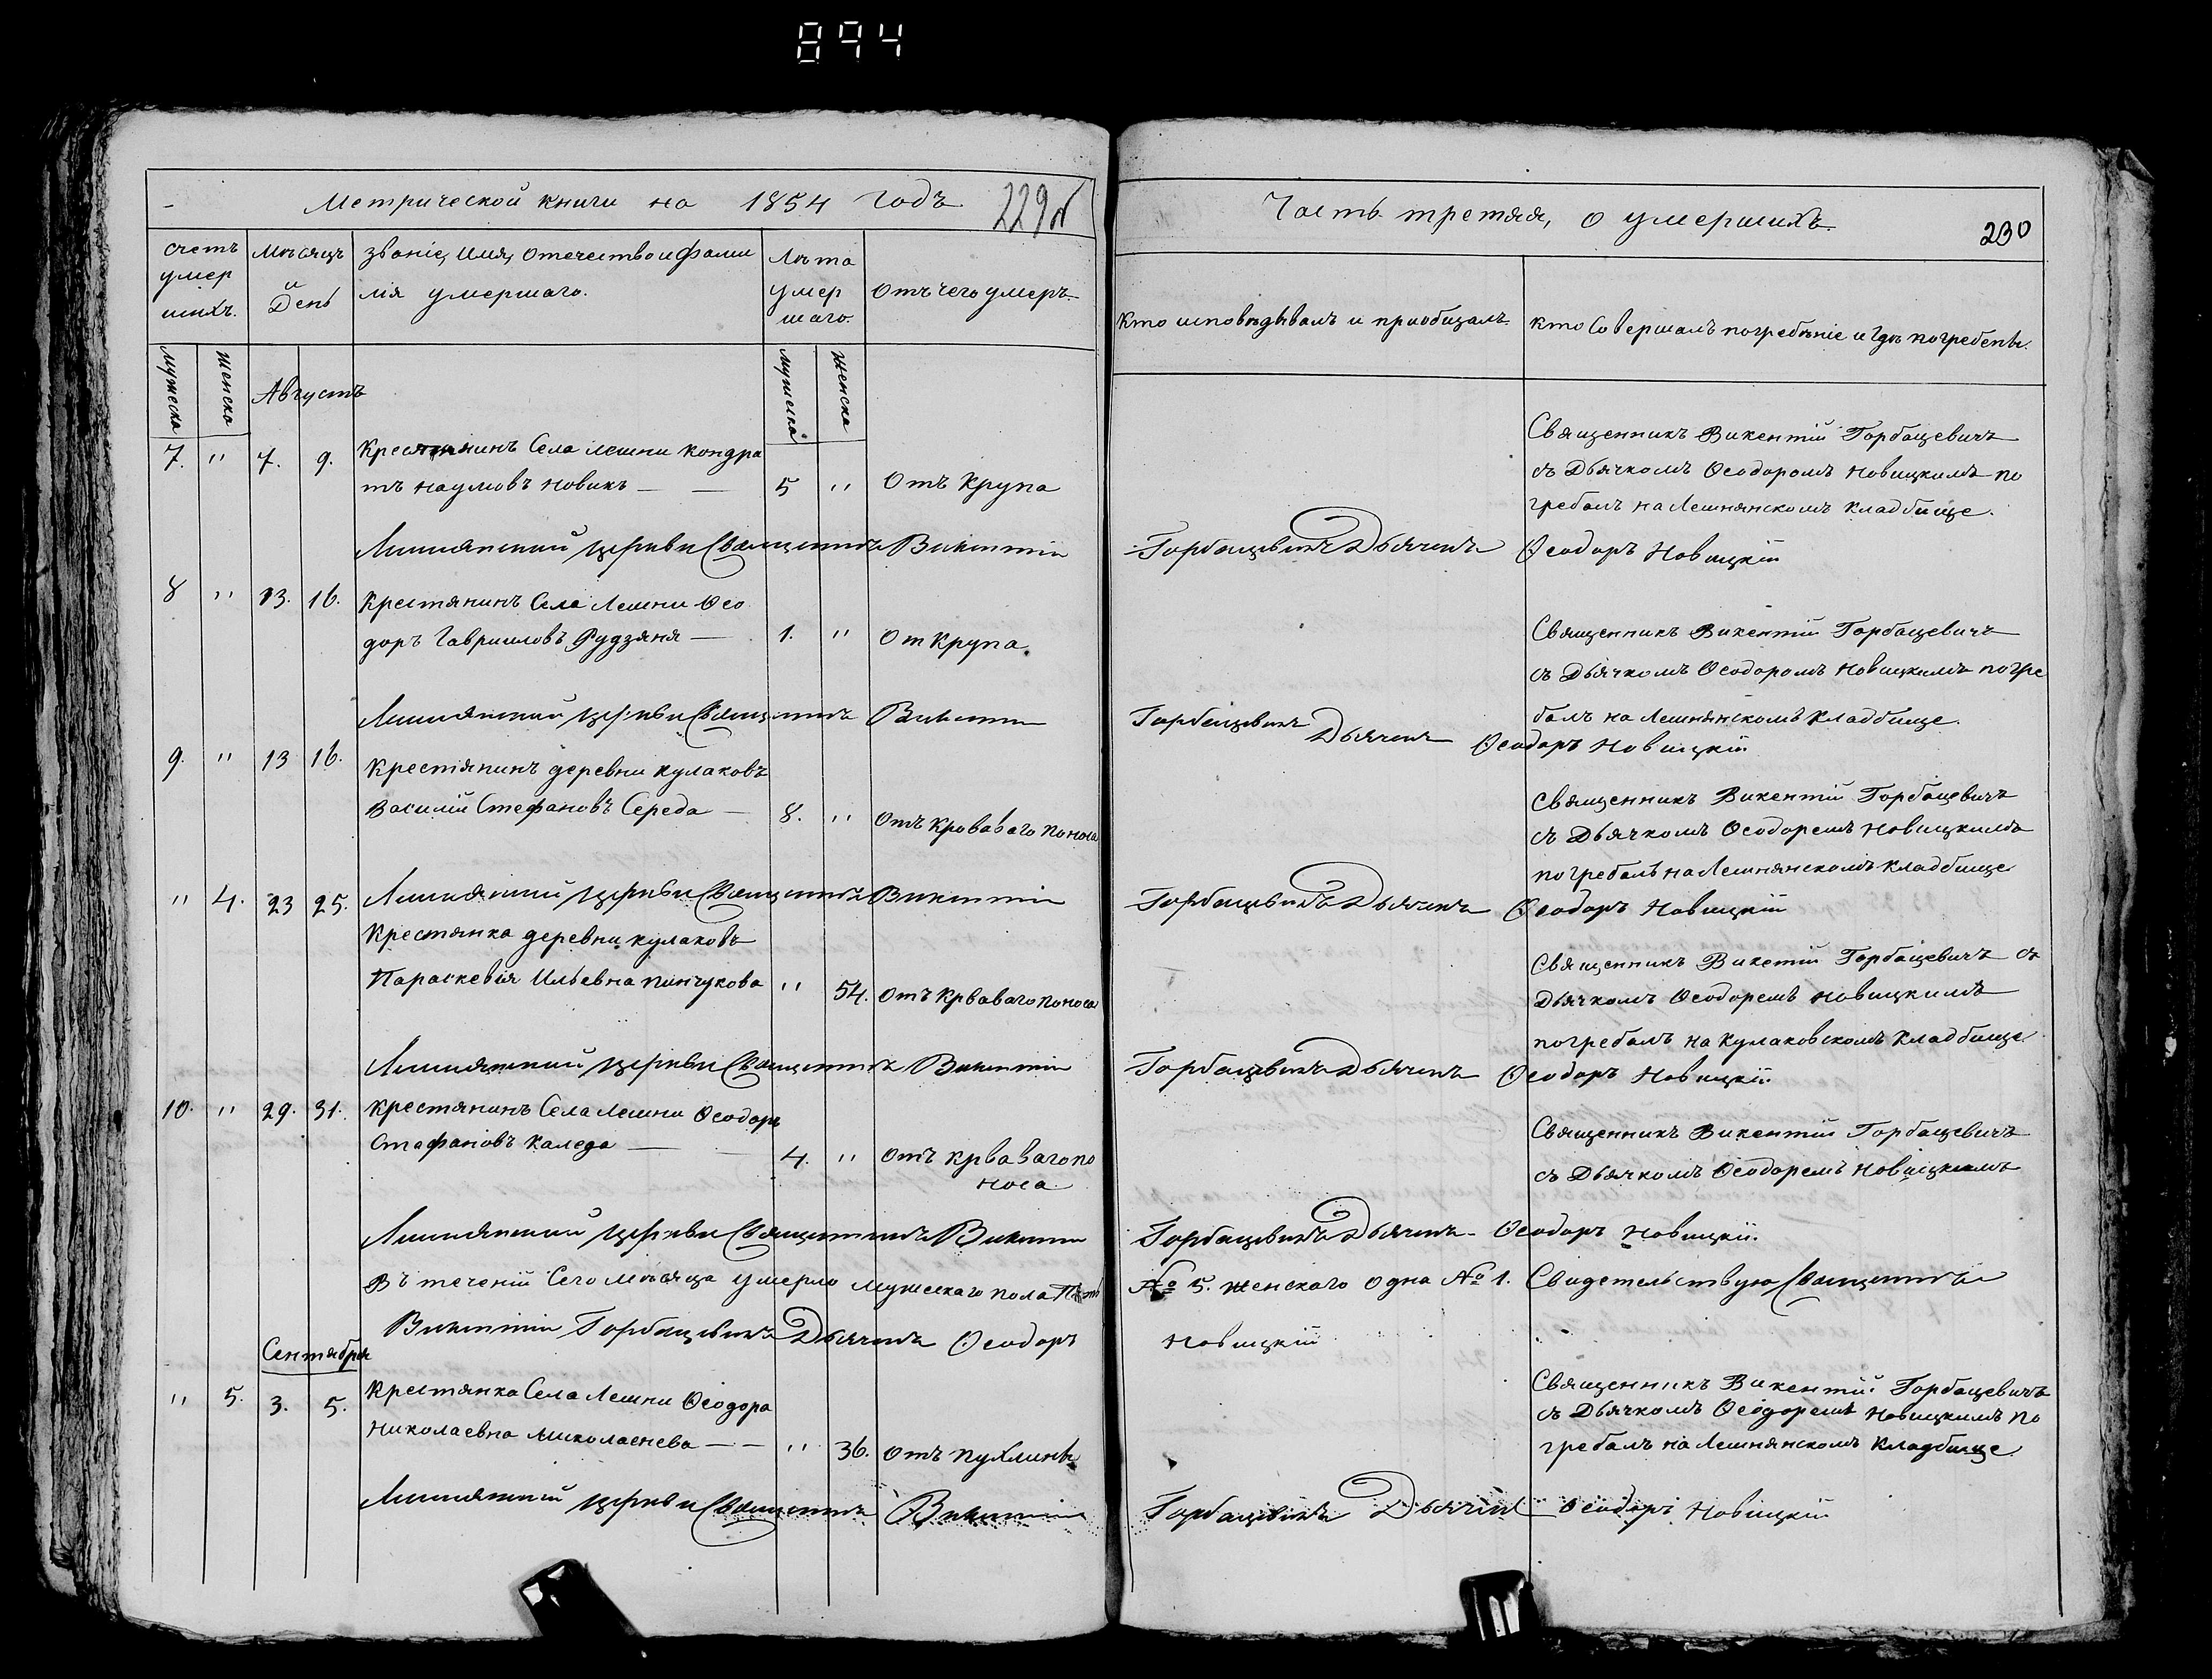 894
Метрической книги на 1854 годъ 229 об
Часть третяя, о умершихъ. 230
счетъ умер шихъ.
Мѣсяцъ и День
званіе, имя, отечество и фами
лія умершаго.
Лѣта умер шаго.
Отъ чего умеръ
Кто исповѣдывалъ и приобщалъ.
Кто Совершалъ погребѣніе и гдѣ погребены.
мужеска женска
мужеска женска
Августъ
7. " 7. 9. Крестянинъ Села Лешни Кондра
тъ Наумовъ Новикъ — — 5 " Отъ Крупа
Священникъ Викентій Горбацевичъ
съ Дьячкомъ Ѳеодоромъ Новицкимъ по
гребалъ на Лешнянскомъ Кладбище.
Лешнянской церкви Священникъ Викентій Горбацевичъ Дьячекъ Ѳеодоръ Новицкій
8 " 13. 16. Крестянинъ Села Лешни Ѳео
доръ Гавриловъ Рудзяня — 1. " От Крупа.
Священникъ Викентій Горбацевичъ
съ Дьячкомъ Ѳеодоромъ Новицкимъ погре
балъ на Лешнянскомъ Кладбище.
Лешнянской церкви Священникъ Викентій Горбацевичъ Дьячекъ Ѳеодоръ Новицкій
9. " 13 16. Крестянинъ деревни Кулаковъ
Василій Стефановъ Середа — 8. " Отъ Кроваваго поноса
Священникъ Викентій Горбацевичъ
съ Дьячкомъ Ѳеодоремъ Новицкимъ
погребалъ на Лешнянскомъ Кладбище
Лешнянской церкви Священникъ Викентій Горбацевичъ Дьячекъ Ѳеодоръ Новицкій
" 4. 23 25. Крестянка деревни Кулаковъ
Параскевія Ильевна Пинчукова " 54. Отъ Крваваго поноса
Священникъ Викетій Горбацевичъ съ
Дьячкомъ Ѳеодоремъ Новицкимъ
погребалъ на Кулаковскомъ Кладбище
Лешнянской церкви Священникъ Викентій Горбацевичъ Дьячекъ Ѳеодоръ Новицкій
10. " 29. 31. Крестянинъ Села Лешни Ѳеодоръ
Стафановъ Каледа — 4. " Отъ Крваваго по
носа
Священникъ Викентій Горбацевичъ
съ Дьячкомъ Ѳеодоремъ Новицкимъ
Лешнянской церкви Священникъ Викентій Горбацевичъ Дьячекъ Ѳеодоръ Новицкій.
Въ теченіи Сего Мѣсяца умерло Мужескаго пола Пять № 5. Женскаго Одна № 1. Свидетельствую Священникъ
Викентій Горбацевичъ Дьячекъ Ѳеодоръ Новицкій
Сентября
" 5. 3. 5. Крестянка Села Лешни Ѳеодора
Николаевна Миколаенева — — " 36. Отъ Пухлины
Священникъ Викентій Горбацевичъ
съ Дьячкомъ Ѳеодоремъ Новицкимъ по
гребалъ на Лешнянскомъ Кладбище
Лешнянской церкви Священникъ Викентій Горбацевичъ Дьячекъ Ѳеодоръ Новицкій